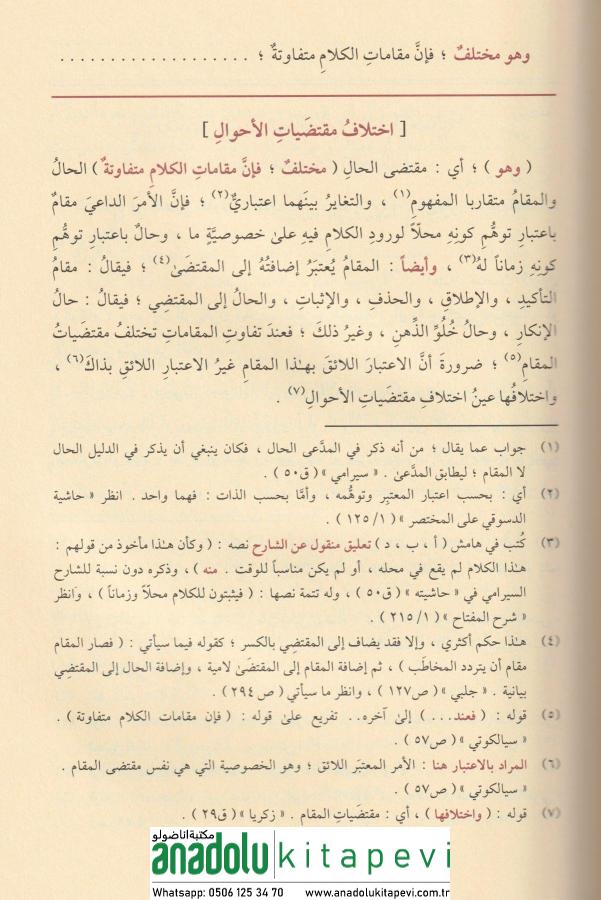 وهو مختلفٌ ؛ فإنَّ مقاماتِ الكلامِ متفاوتةٌ ؛ . . . . . . . . . . . . . . . . . . .
[ اختلافُ مقتضَياتِ الأحوالِ ]
( وهو ) ؛ أي : مقتضى الحالِ ( مختلفٌ ؛ فإنَّ مقاماتِ الكلامِ متفاوتةٌ ) الحالُ
والمقامُ متقاربا المفهومِ(١) ، والتغايرُ بينَهما اعتباريٌّ(٢) ؛ فإنَّ الأمرَ الداعيَ مقامٌ
باعتبارِ توهُّمِ كونِهِ محلّاً لورودِ الكلامِ فيهِ علىٰ خصوصيَّةٍ ما ، وحالٌ باعتبارِ توهُّمِ
كونِهِ زماناً لهُ(٣) ، وأيضاً : المقامُ يُعتبَرُ إضافتُهُ إلى المقتضَىٰ(٤) ؛ فيقالُ : مقامُ
التأكيدِ ، والإطلاقِ ، والحذفِ ، والإثباتِ ، والحالُ إلى المقتضِي ؛ فيقالُ : حالُ
الإنكارِ ، وحالُ خُلُوِّ الذِّهنِ ، وغيرُ ذلكَ ؛ فعندَ تفاوتِ المقاماتِ تختلفُ مقتضَياتُ
المقامِ(٥) ؛ ضرورةَ أنَّ الاعتبارَ اللائقَ بهـٰذا المقامِ غيرُ الاعتبارِ اللائقِ بذاكَ(٦) ،
واختلافُها عينُ اختلافِ مقتضَياتِ الأحوالِ(٧) .
(١) جواب عما يقال ؛ من أنه ذكر في المدَّعى الحال ، فكان ينبغي أن يذكر في الدليل الحال
لا المقام ؛ ليطابق المدَّعىٰ . « سيرامي » ( ق٥٠ ) .
(٢) أي : بحسب اعتبار المعتبِر وتوهُّمه ، وأمَّا بحسب الذات : فهما واحد . انظر « حاشية
الدسوقي على المختصر » ( ١/ ١٢٥ ) .
(٣) كُتب في هامش ( أ ، ب ، د ) تعليق منقول عن الشارح نصه : ( وكأن هـٰذا مأخوذ من قولهم :
هـٰذا الكلام لم يقع في محله ، أو لم يكن مناسباً للوقت . منه ) ، وذكره دون نسبة للشارح
السيرامي في « حاشيته » ( ق٥٠ ) ، وله تتمة نصها : ( فيثبتون للكلام محلاً وزماناً ) ، وانظر
« شرح المفتاح » ( ١/ ٢١٥ ) .
(٤) هـٰذا حكم أكثري ، وإلا فقد يضاف إلى المقتضِي بالكسر ؛ كقوله فيما سيأتي : ( فصار المقام
مقام أن يتردد المخاطَب ) ، ثم إضافة المقام إلى المقتضَىٰ لامية ، وإضافة الحال إلى المقتضِي
بيانية . « جلبي » ( ص١٢٧ ) ، وانظر ما سيأتي ( ص٢٩٤ ) .
(٥) قوله : ( فعند... ) إلىٰ آخره.. تفريع علىٰ قوله : ( فإن مقامات الكلام متفاوتة ) .
« سيالكوتي » ( ص٥٧ ) .
(٦) المراد بالاعتبار هنا : الأمر المعتبَر اللائق ؛ وهو الخصوصية التي هي نفس مقتضى المقام .
« سيالكوتي » ( ص٥٧ ) .
(٧) قوله : ( واختلافها ) ، أي : مقتضَيات المقام . « زكريا » ( ق٢٩ ) .
مكتبة اناضولو
anadolu kitapevi
Whatsapp: 0506 125 34 70 www.anadolukitapevi.com.tr